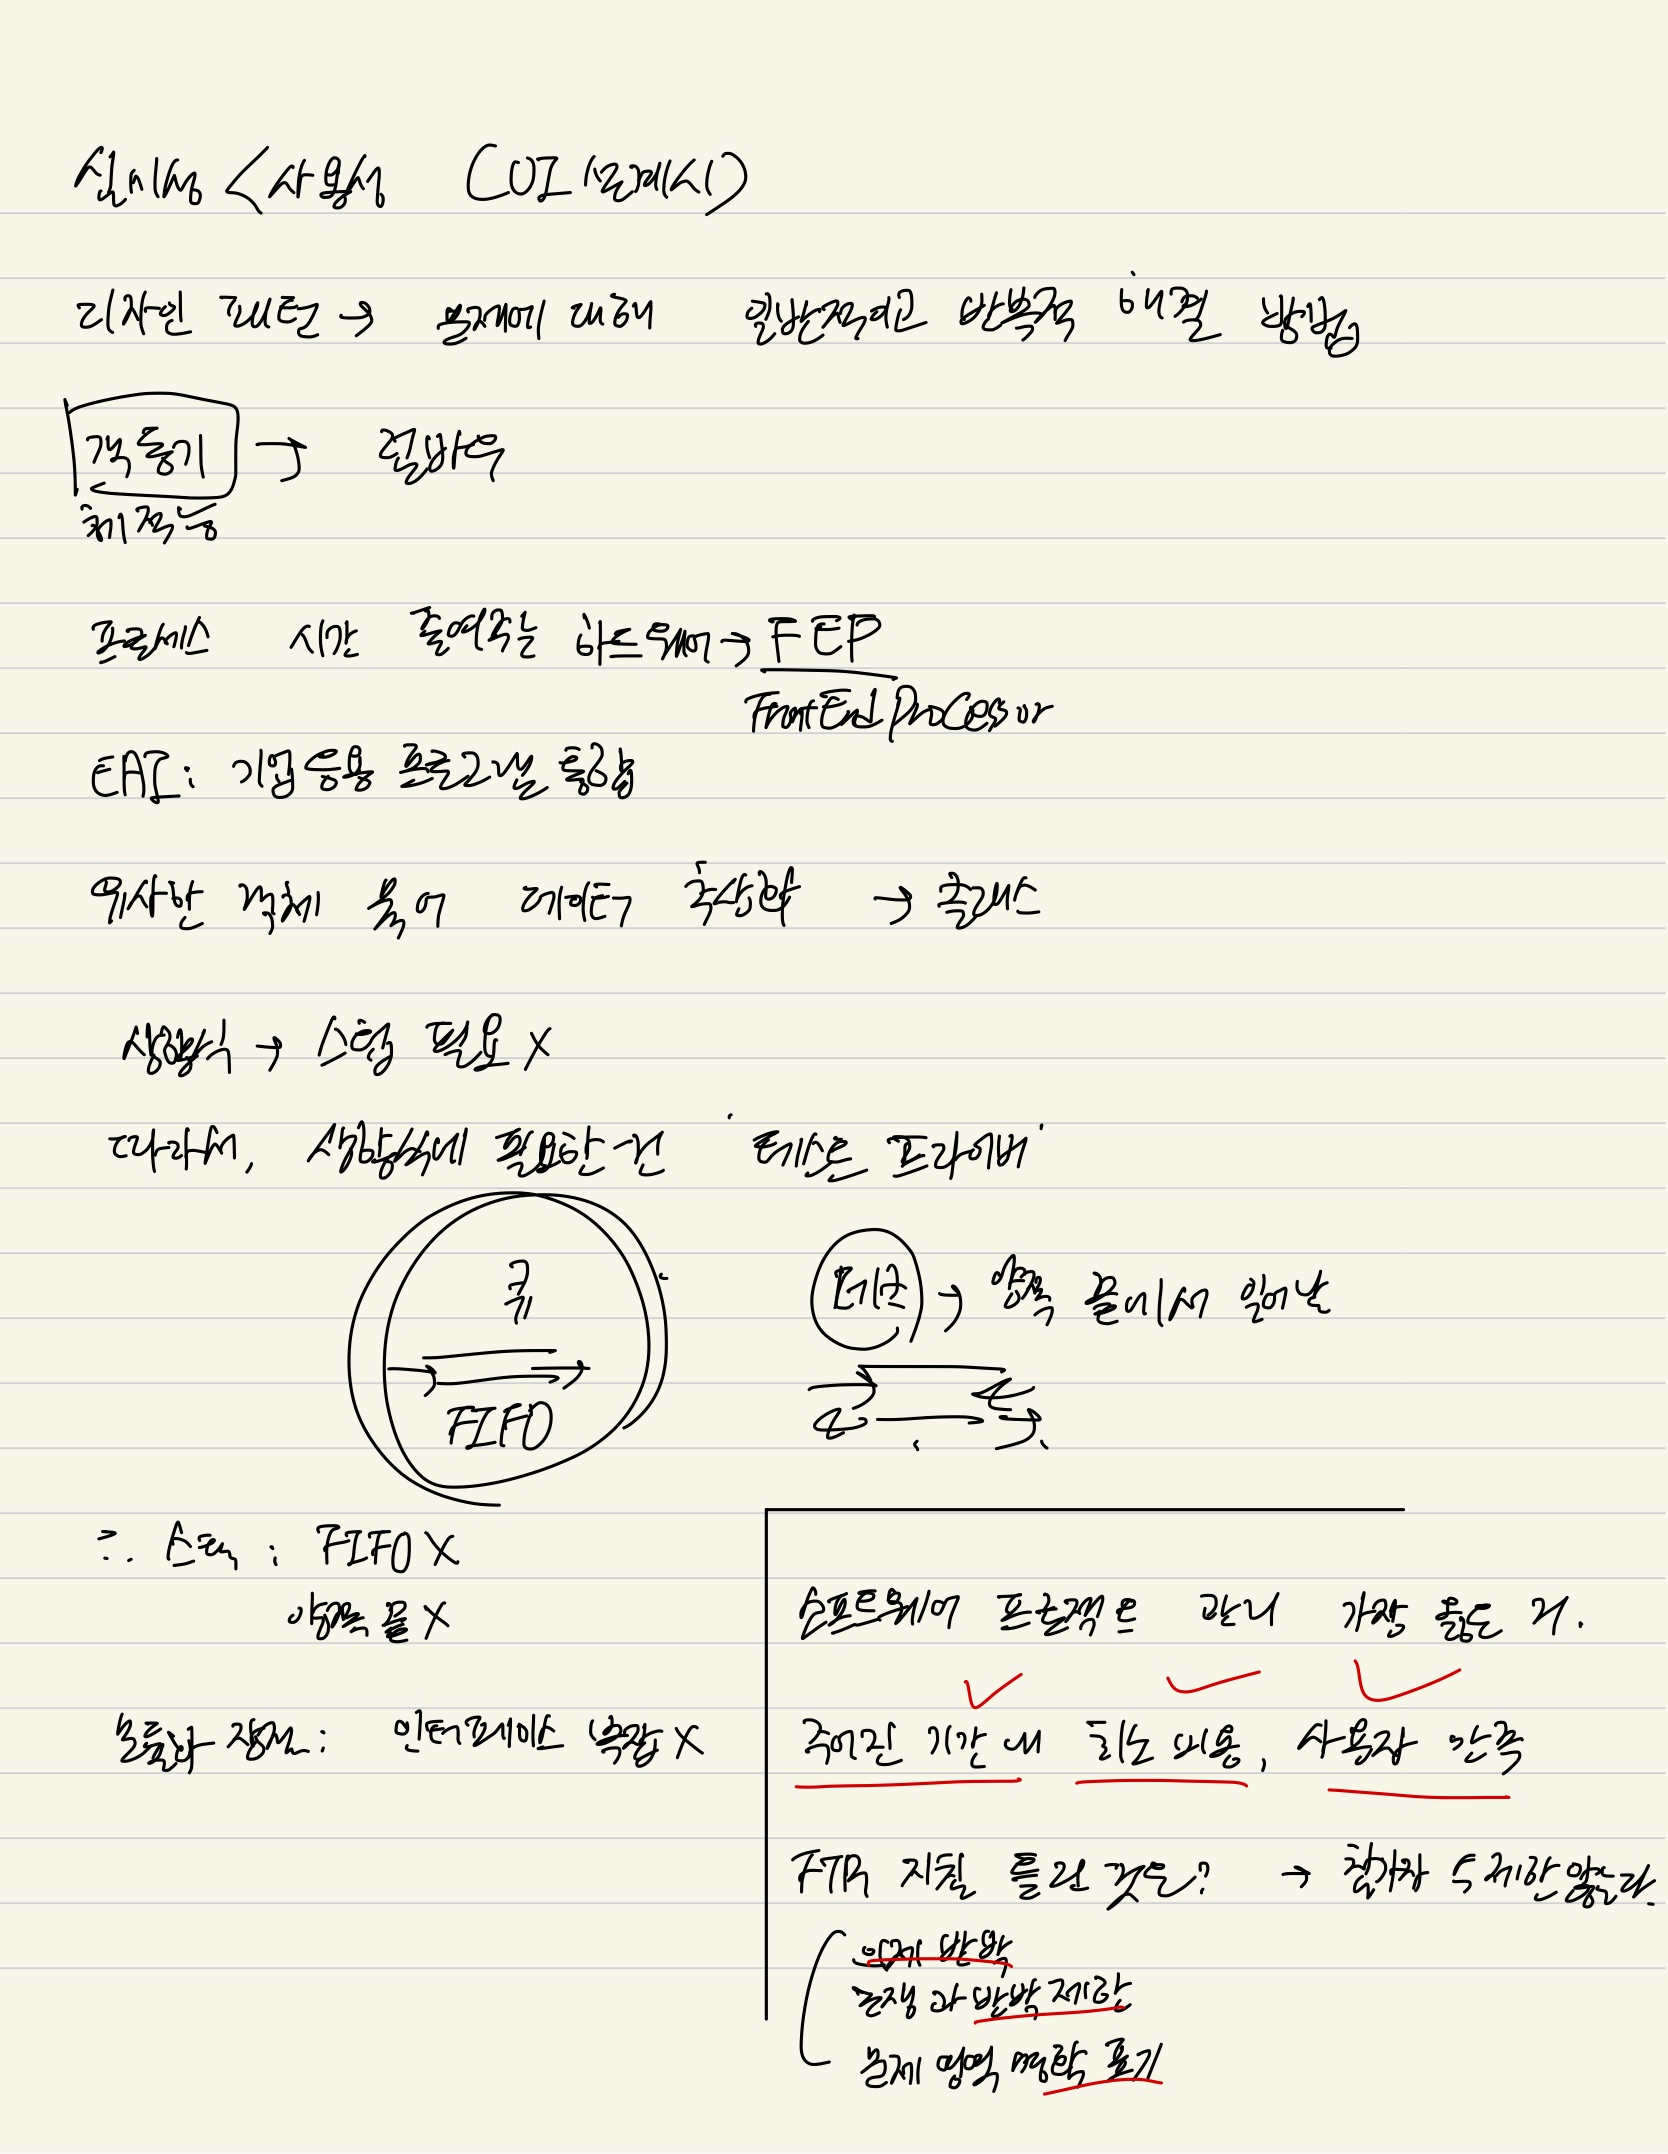 심미성 < 사용성 (UI 설계시)
디자인 패턴 → 문제에 대해 일반적이고 반복적 해결 방법
객동기 → 럼바우
체적능
프로세스 시간 줄여주는 하드웨어 → FEP
Front End Processor
EAI : 기업 응용 프로그램 통합
유사한 객체 묶어 데이터 추상화 → 클래스
상향식 → 스텁 필요 X
따라서, 상향식에 필요한 건 '테스트 프라이버'
큐
FIFO
데큐 → 양쪽 끝에서 일어남
∴ 스택 : FIFO X
양쪽 끝 X
모듈화 장점 : 인터페이스 복잡 X
소프트웨어 프로젝트 관리 가장 옳은 거.
주어진 기간 내 최소 비용, 사용자 만족
FTR 지침 틀린 것은? → 참가자 수 제한 않는다.
의제 반박
논쟁과 반박 제한
문제 영역 명확 표기